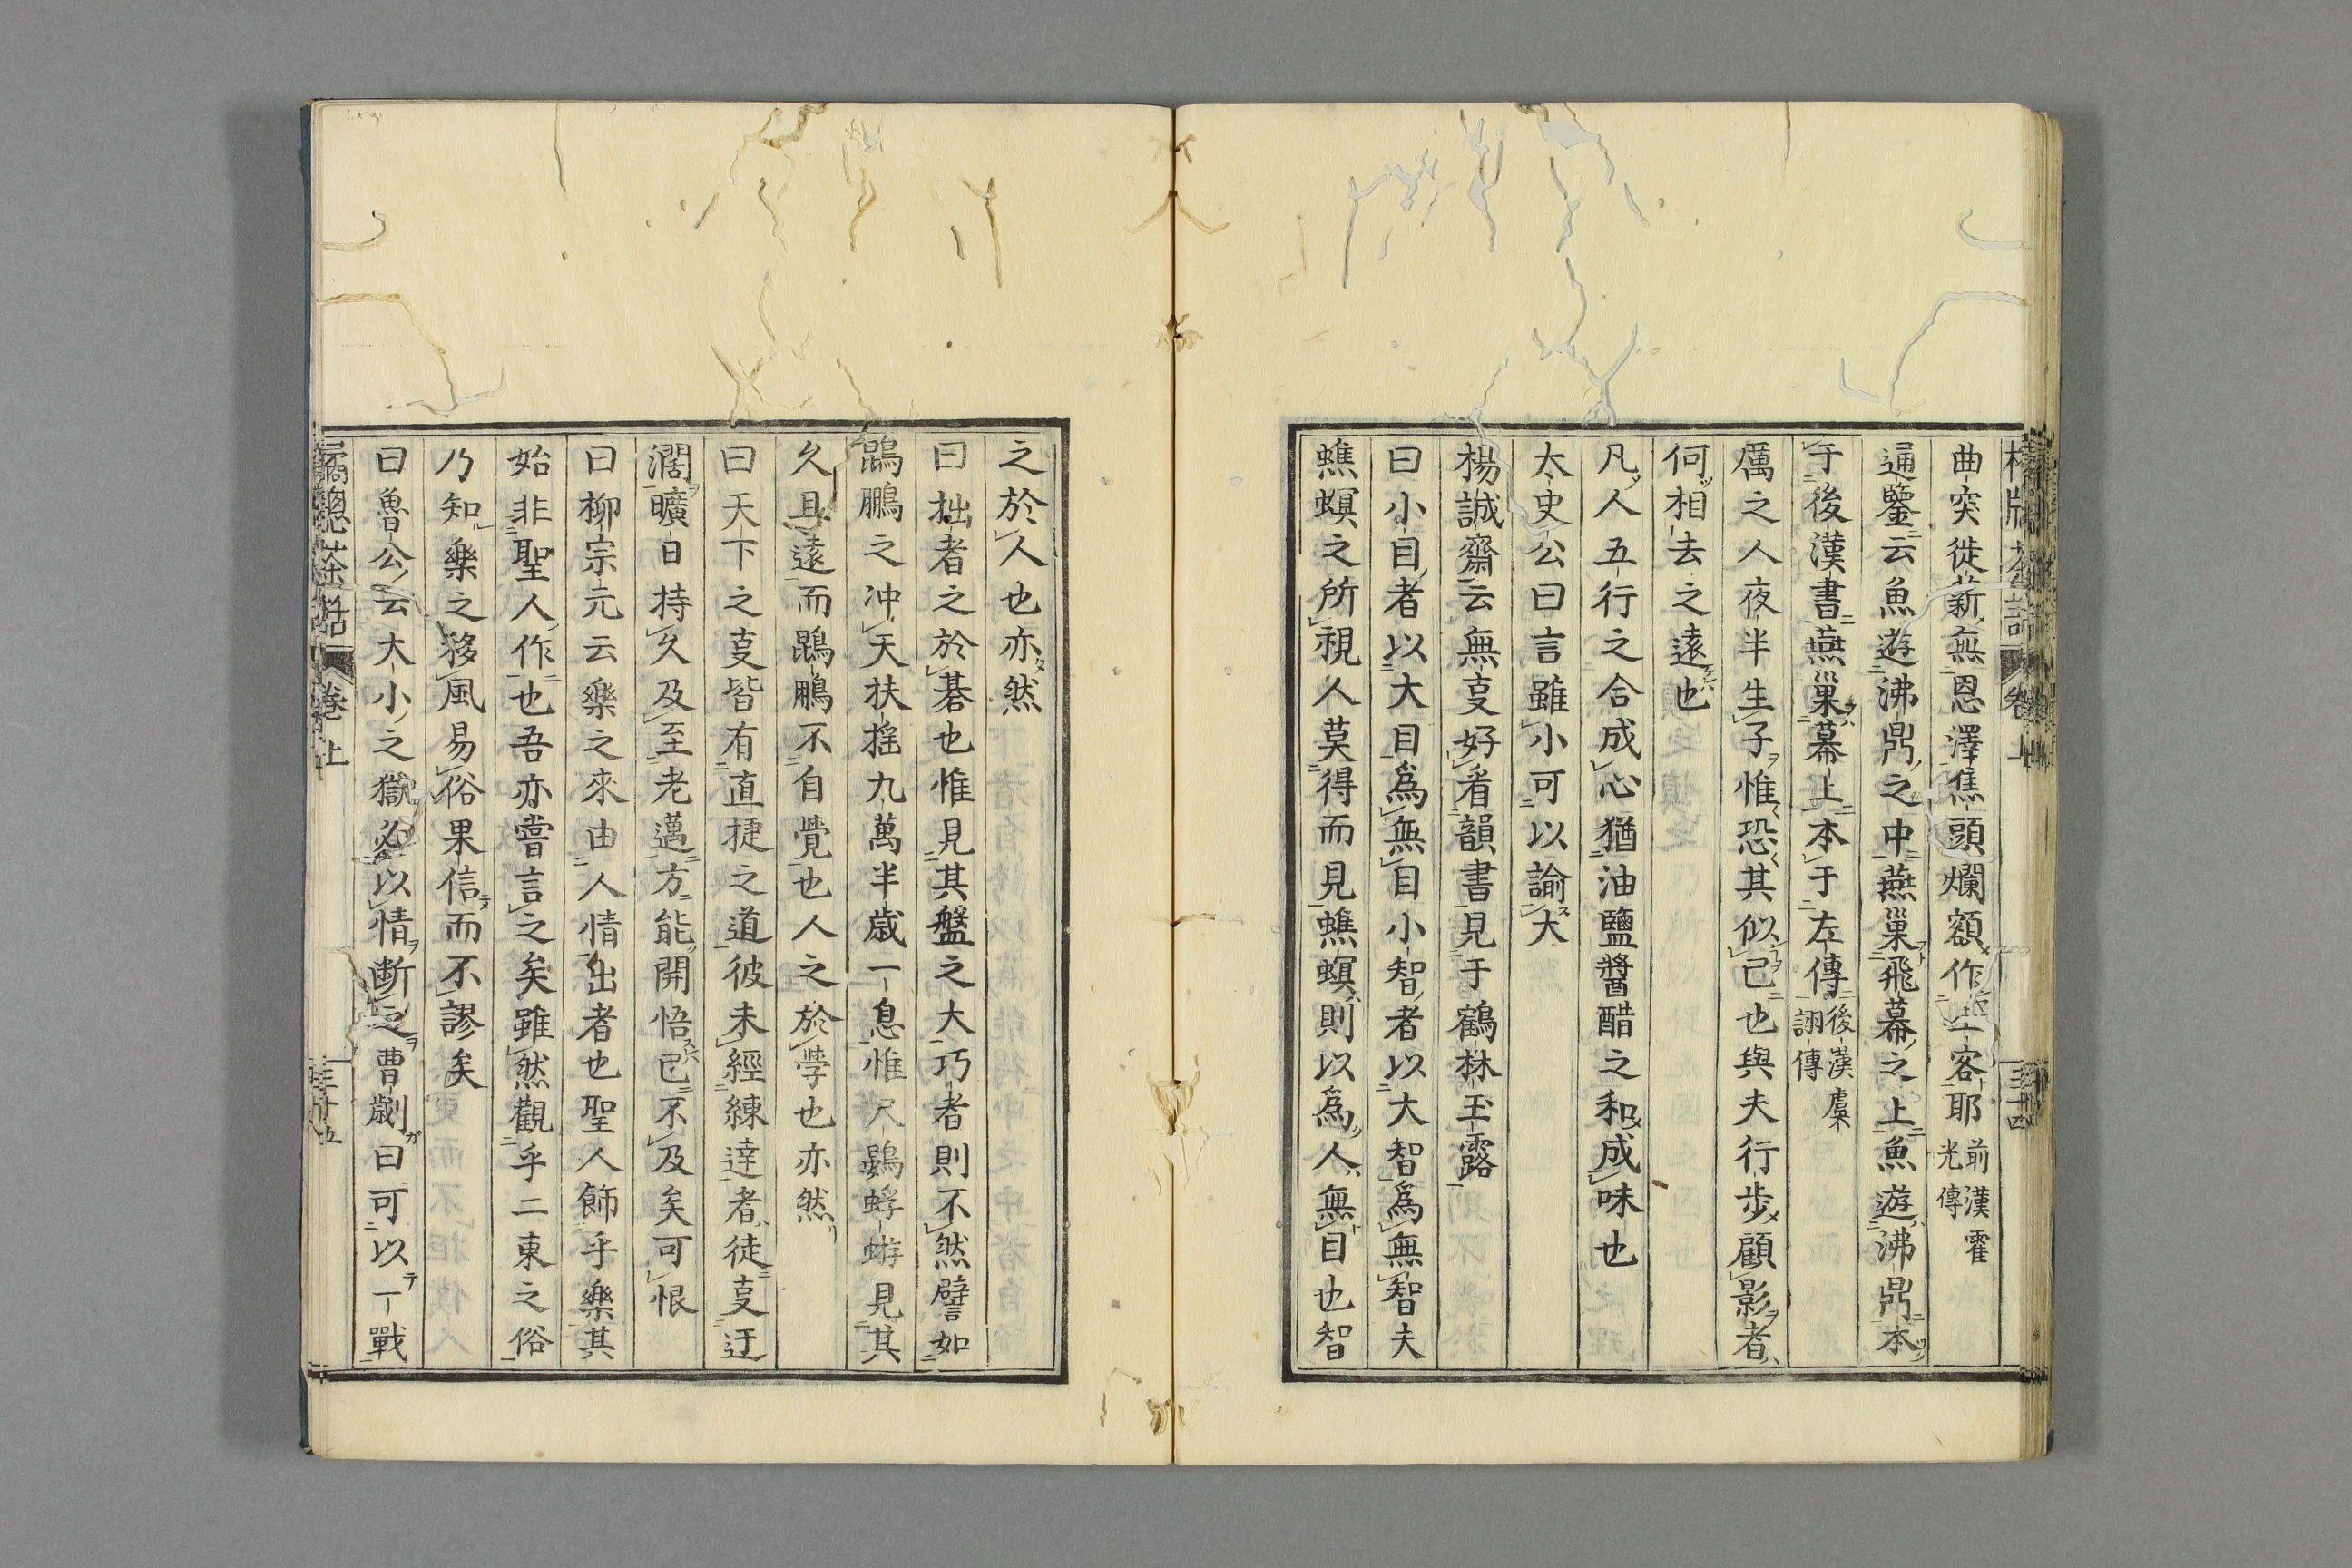 曲突徙薪無恩澤焦頭爛額作上客耶前漢霍光傳
通鑒云魚遊沸鼎之中燕巢飛幕之上魚遊沸鼎本
于後漢書燕巢幕上本于左傳後漢虞詡傳
厲之人夜半生子惟恐其似己也與夫行歩顧影者
何相去之遠也
凡人五行之合成心猶油鹽醬醋之和成味也
太史公曰言雖小可以諭大
楊誠齋云無㕝好看韻書見于鶴林玉露
曰小目者以大目爲無目小智者以大智爲無智夫
蟭螟之所視人莫得而見蟭螟則以爲人無目也智
之於人也亦然
曰拙者之於碁也惟見其盤之大巧者則不然譬如
鵾鵬之冲天扶揺九萬半歳一息惟尺鷃蜉蝣見其
久且遠而鵾鵬不自覺也人之於學也亦然
曰天下之㕝皆有直捷之道彼未經練達者徒㕝迂
濶曠日持久及至老邁方能開悟已不及矣可恨
曰柳宗元云樂之來由人情出者也聖人飾乎樂其
始非聖人作也吾亦嘗言之矣雖然觀乎二東之俗
乃知樂之移風易俗果信而不謬矣
曰魯公云大小之獄必以情断之曹劌曰可以一戰
窓茶話 卷上